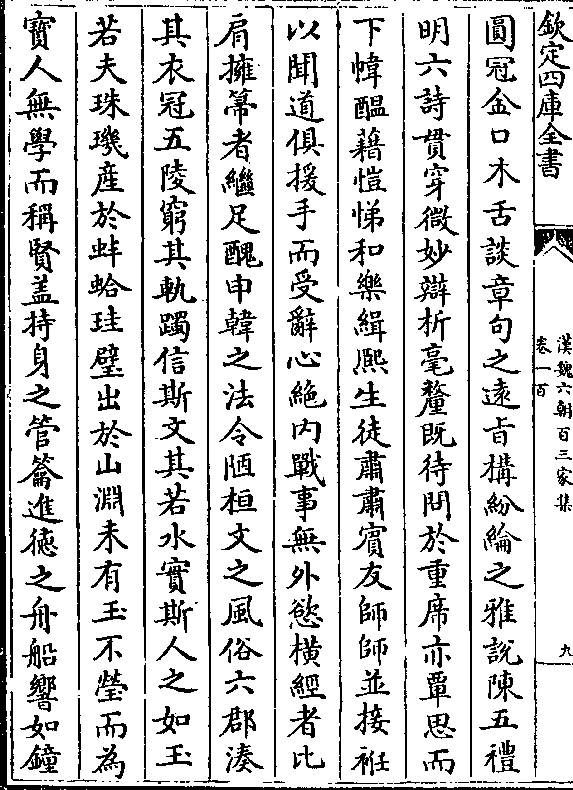 欽定四庫全書
漢魏六朝百三家集
卷一百
九
圓冠金口木舌談章句之遠旨構紛綸之雅說陳五禮
明六詩貫穿微妙辯析毫釐既待問於重席亦覃思而
下幃醖藉愷悌和樂緝熈生徒肅肅賓友師師並接袵
以聞道俱援手而受辭心絶内戰事無外慾橫經者比
肩擁箒者繼足醜申韓之法令陋桓文之風俗六郡湊
其衣冠五陵窮其軌躅信斯文其若水實斯人之如玉
若夫珠璣産於蚌蛤珪璧出於山淵未有玉不瑩而為
寳人無學而稱賢盖持身之管籥進德之舟船響如鐘